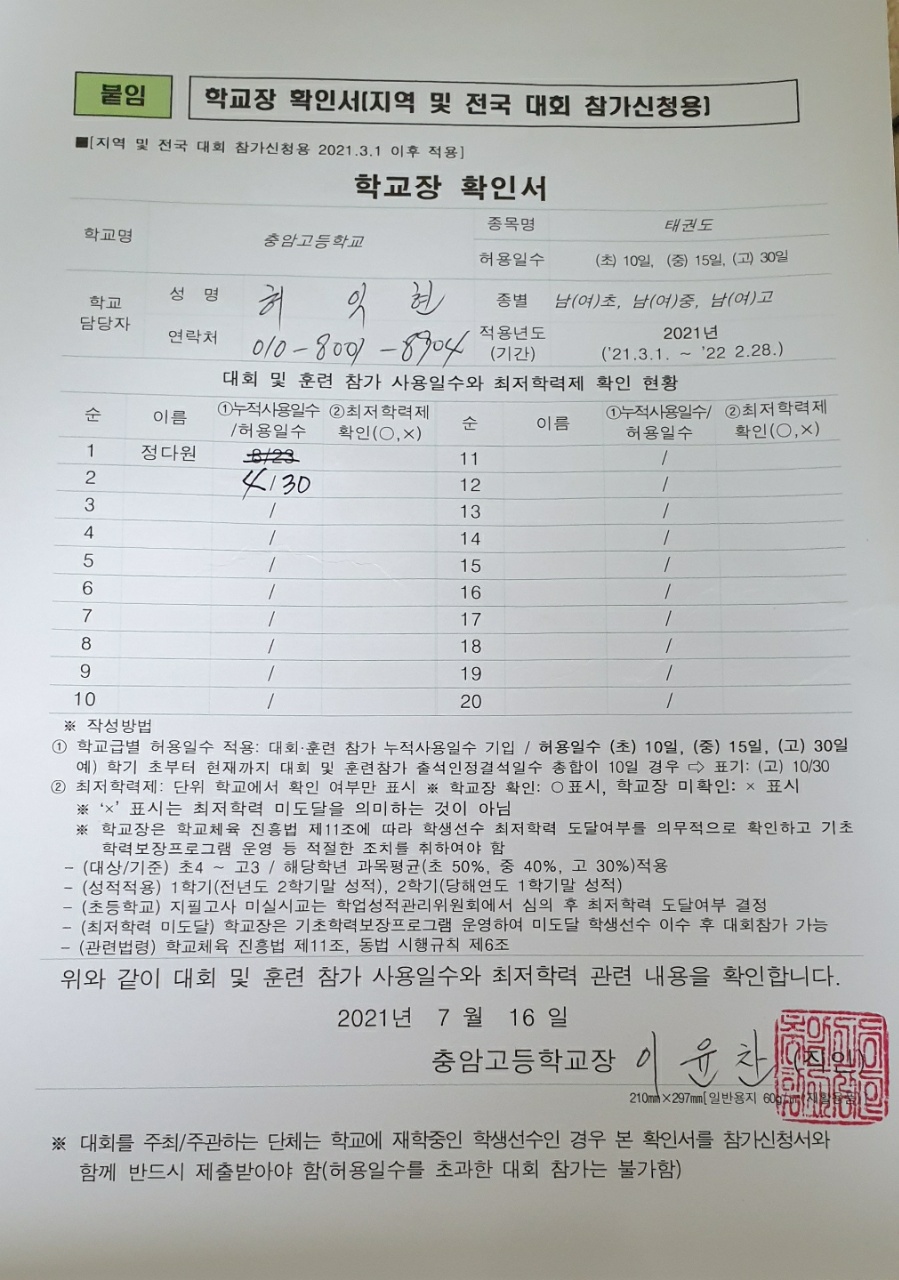 붙임
학교장 확인서(지역 및 전국 대회 참가신청용)
■[지역 및 전국 대회 참가신청용 2021.3.1 이후 적용]
학교장 확인서
학교명 충암고등학교 종목명 태권도
허용일수 (초) 10일, (중) 15일, (고) 30일
학교 담당자 성 명 허 익 현 종별 남(여)초, 남(여)중, 남(여)고
연락처 010-8001-8904 적용년도 (기간) 2021년 ('21.3.1. ~ '22 2.28.)
대회 및 훈련 참가 사용일수와 최저학력제 확인 현황
순 이름 ①누적사용일수/허용일수 ②최저학력제 확인(○,×) 순 이름 ①누적사용일수/허용일수 ②최저학력제 확인(○,×)
1 정다원 8/23 11 /
2 4/30 12 /
3 / 13 /
4 / 14 /
5 / 15 /
6 / 16 /
7 / 17 /
8 / 18 /
9 / 19 /
10 / 20 /
※ 작성방법
① 학교급별 허용일수 적용: 대회·훈련 참가 누적사용일수 기입 / 허용일수 (초) 10일, (중) 15일, (고) 30일
예) 학기 초부터 현재까지 대회 및 훈련참가 출석인정결석일수 총합이 10일 경우 ⇨ 표기: (고) 10/30
② 최저학력제: 단위 학교에서 확인 여부만 표시 ※ 학교장 확인: ○표시, 학교장 미확인: × 표시
※ '×' 표시는 최저학력 미도달을 의미하는 것이 아님
※ 학교장은 학교체육 진흥법 제11조에 따라 학생선수 최저학력 도달여부를 의무적으로 확인하고 기초
학력보장프로그램 운영 등 적절한 조치를 취하여야 함
- (대상/기준) 초4 ~ 고3 / 해당학년 과목평균(초 50%, 중 40%, 고 30%)적용
- (성적적용) 1학기(전년도 2학기말 성적), 2학기(당해연도 1학기말 성적)
- (초등학교) 지필고사 미실시교는 학업성적관리위원회에서 심의 후 최저학력 도달여부 결정
- (최저학력 미도달) 학교장은 기초학력보장프로그램 운영하여 미도달 학생선수 이수 후 대회참가 가능
- (관련법령) 학교체육 진흥법 제11조, 동법 시행규칙 제6조
위와 같이 대회 및 훈련 참가 사용일수와 최저학력 관련 내용을 확인합니다.
2021년 7 월 16 일
충암고등학교장 이 윤 찬 (직인)
210㎜×297㎜[일반용지 60g/㎡(재활용품)]
※ 대회를 주최/주관하는 단체는 학교에 재학중인 학생선수인 경우 본 확인서를 참가신청서와
함께 반드시 제출받아야 함(허용일수를 초과한 대회 참가는 불가함)